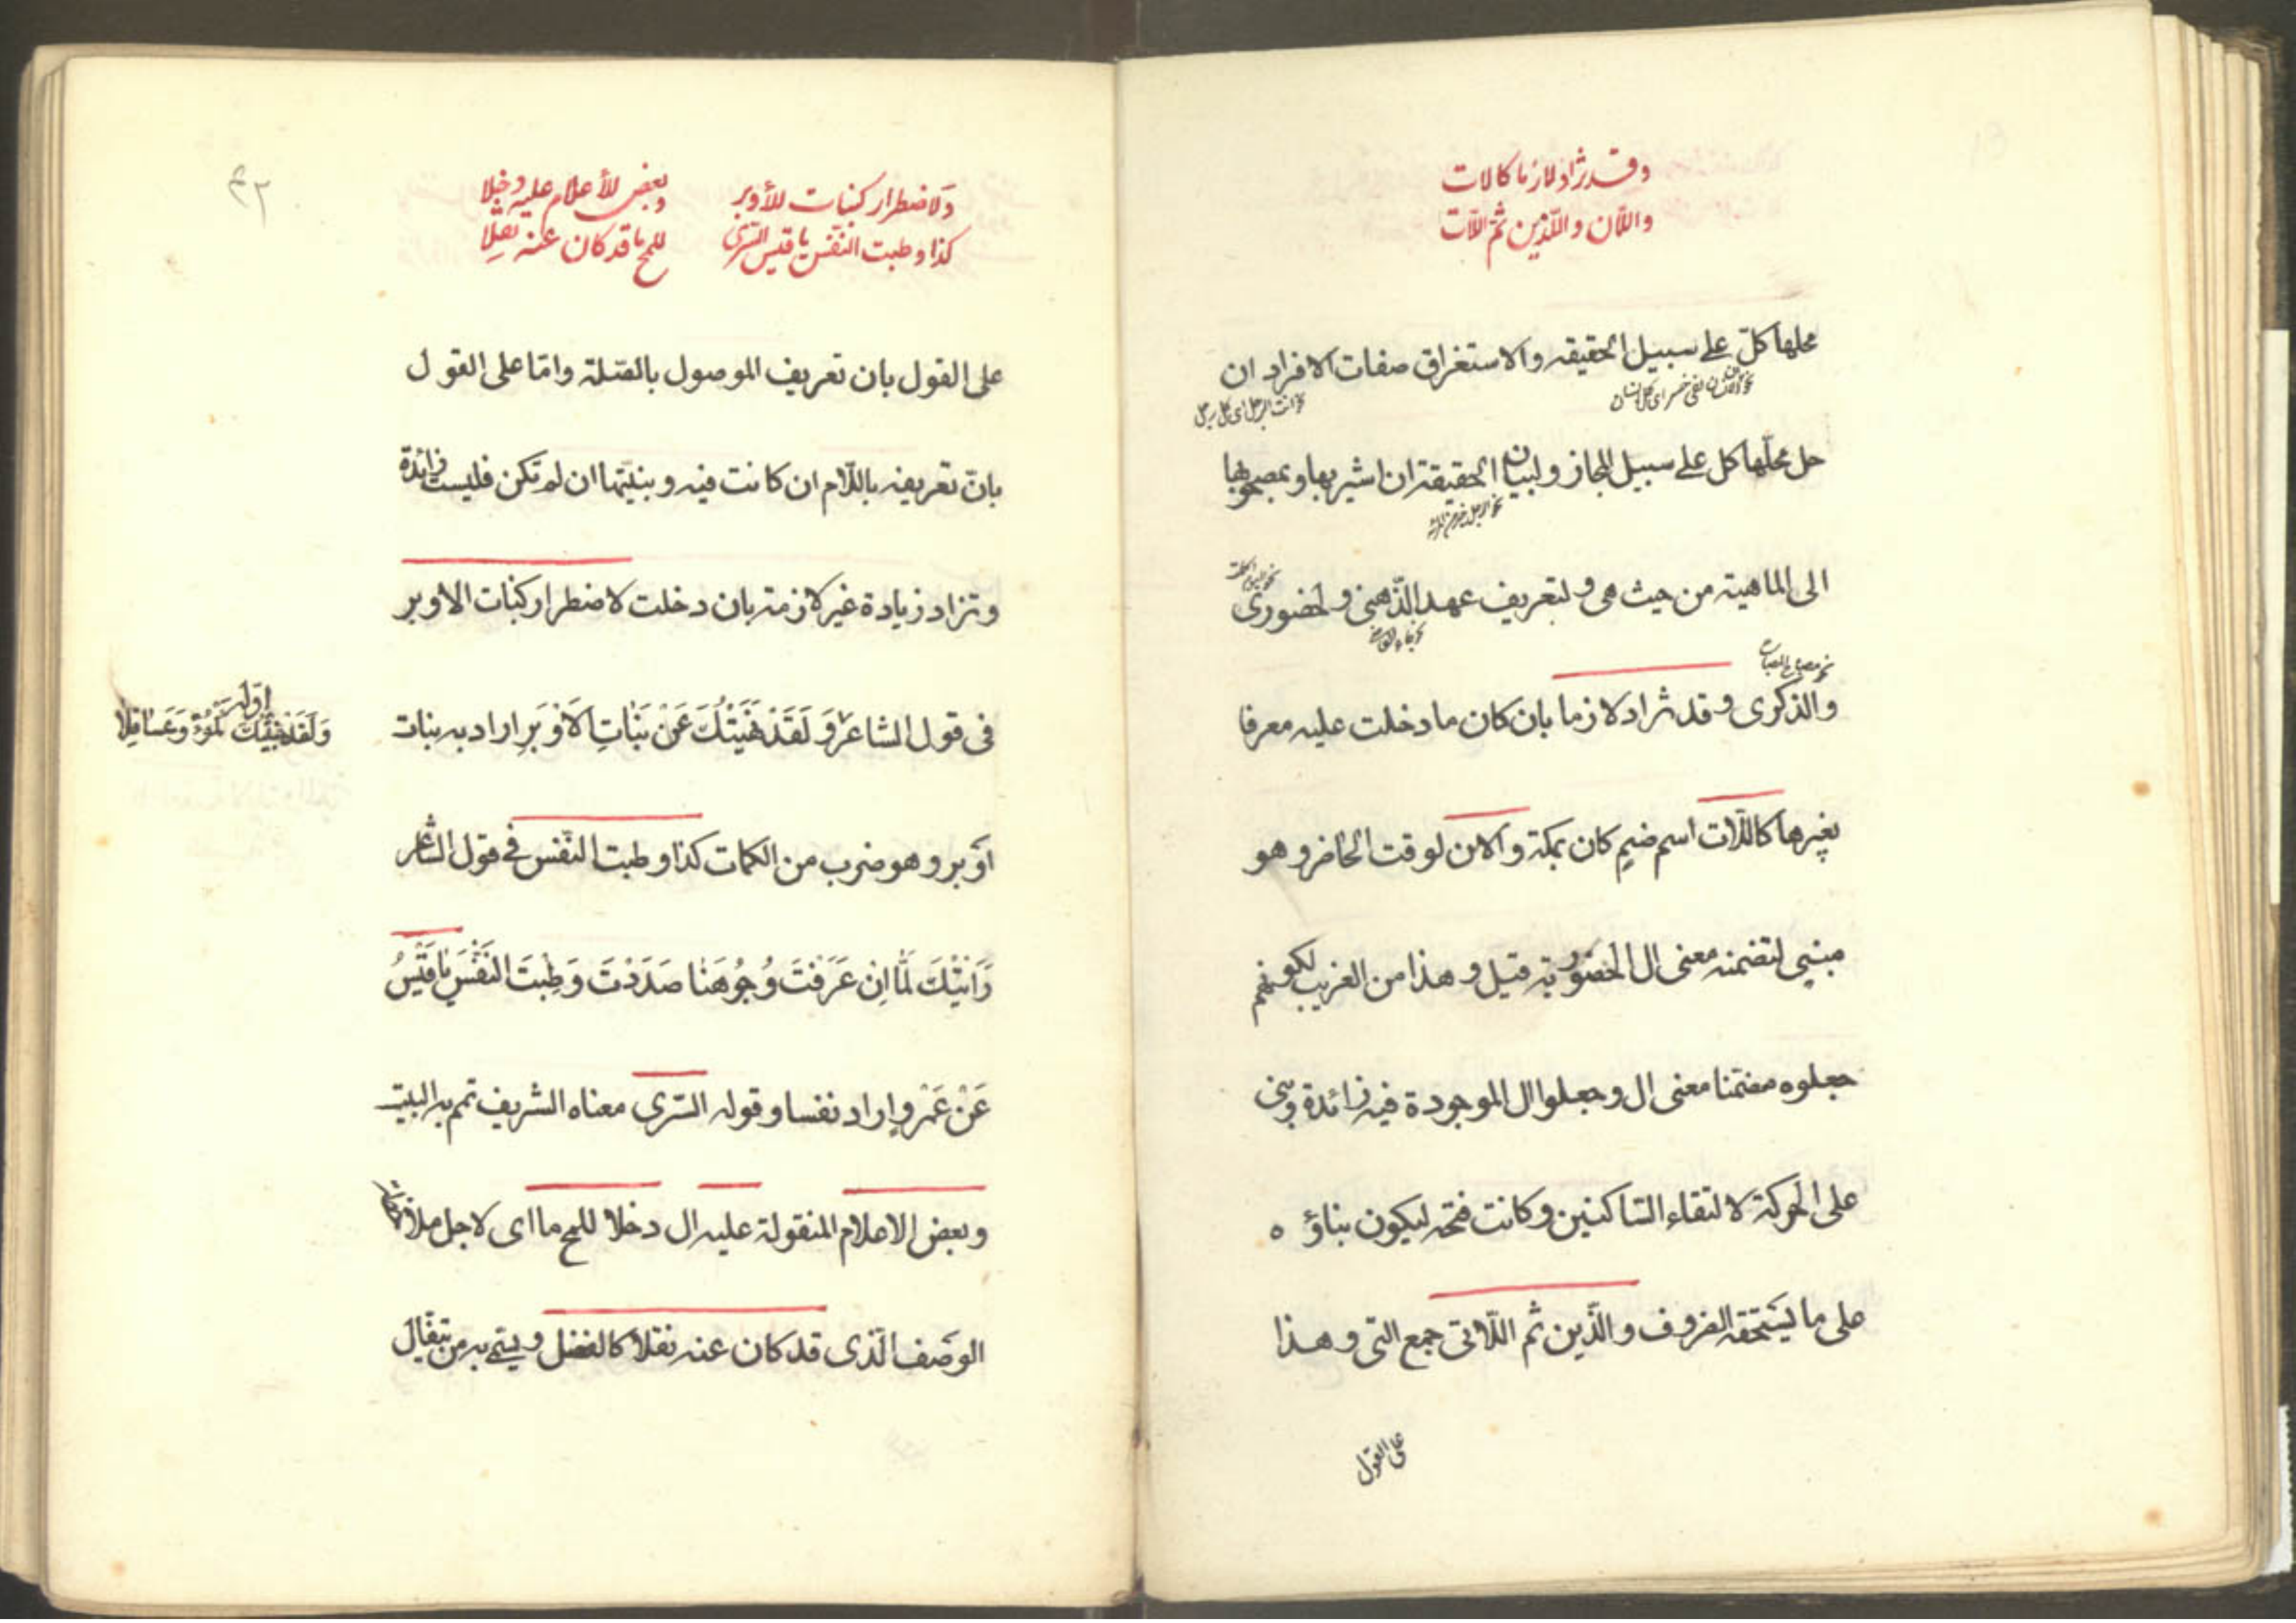 وقد تزاد لازما كاللات
والان والذين ثم اللات
محلها كل على سبيل الحقيقه والاستغراق صفات الافراد ان
نحو ان الانسان لفى خسر اى كل انسان
نحو انت الرجل اى كل رجل
حل محلها كل على سبيل المجاز ولبيان الحقيقة ان اشير بها وبمصحوبها
نحو الرجل خير من المرأة
الى الماهية من حيث هى ولتعريف عهد الذهنى والحضورى
والذكرى وقد تزاد لازما بان كان ما دخلت عليه معرفا
بغيرها كاللات اسم ضم كان بمكة والان لوقت الحاضر وهو
مبنى لتضمنه معنى ال الحضورية قيل وهذا من الغريب لكونهم
جعلوه مضمنا معنى ال وجعلوا ال الموجودة فيه زائدة وبنى
على الحركة لالتقاء الساكنين وكانت فتحه ليكون بناؤه
على ما يستحقه الظروف والذين ثم اللاتى جمع التى وهذا
على القول
٤٢
ولاضطرار كبنات الأوبر
كذا وطبت النفس يا قيس السرى
وبعض الأعلام عليه دخلا
للمح ما قد كان عنه نقلا
على القول بان تعريف الموصول بالصلة واما على القول
بان تعريفه باللام ان كانت فيه وبنيتها ان لم تكن فليست زائدة
وتزاد زيادة غير لازمة بان دخلت لاضطرار كبنات الاوبر
فى قول الشاعر وَلَقَدْ نَهَيْتُكَ عَنْ بَنَاتِ الاَوْبَرِ اراد به بنات
اوّله
وَلَقَدْ جَنَيْتُكَ اَكْمُؤًا وَعَسَاقِلًا
اوبر وهو ضرب من الكمات كذا وطبت النفس فى قول الشاعر
رَاَيْتُكَ لَمَّا اِنْ عَرَفْتَ وُجُوهَنَا صَدَدْتَ وَطِبْتَ النَفْسَ يَا قَيْسُ
عَنْ عَمْرٍو اراد نفسا وقوله السرى معناه الشريف تمم به البيت
وبعض الاعلام المنقولة عليه ال دخلا للمح ما اى لاجل ملاحظة
الوصف الذى قد كان عنه نقلا كالفضل ويسمى به من يتفال